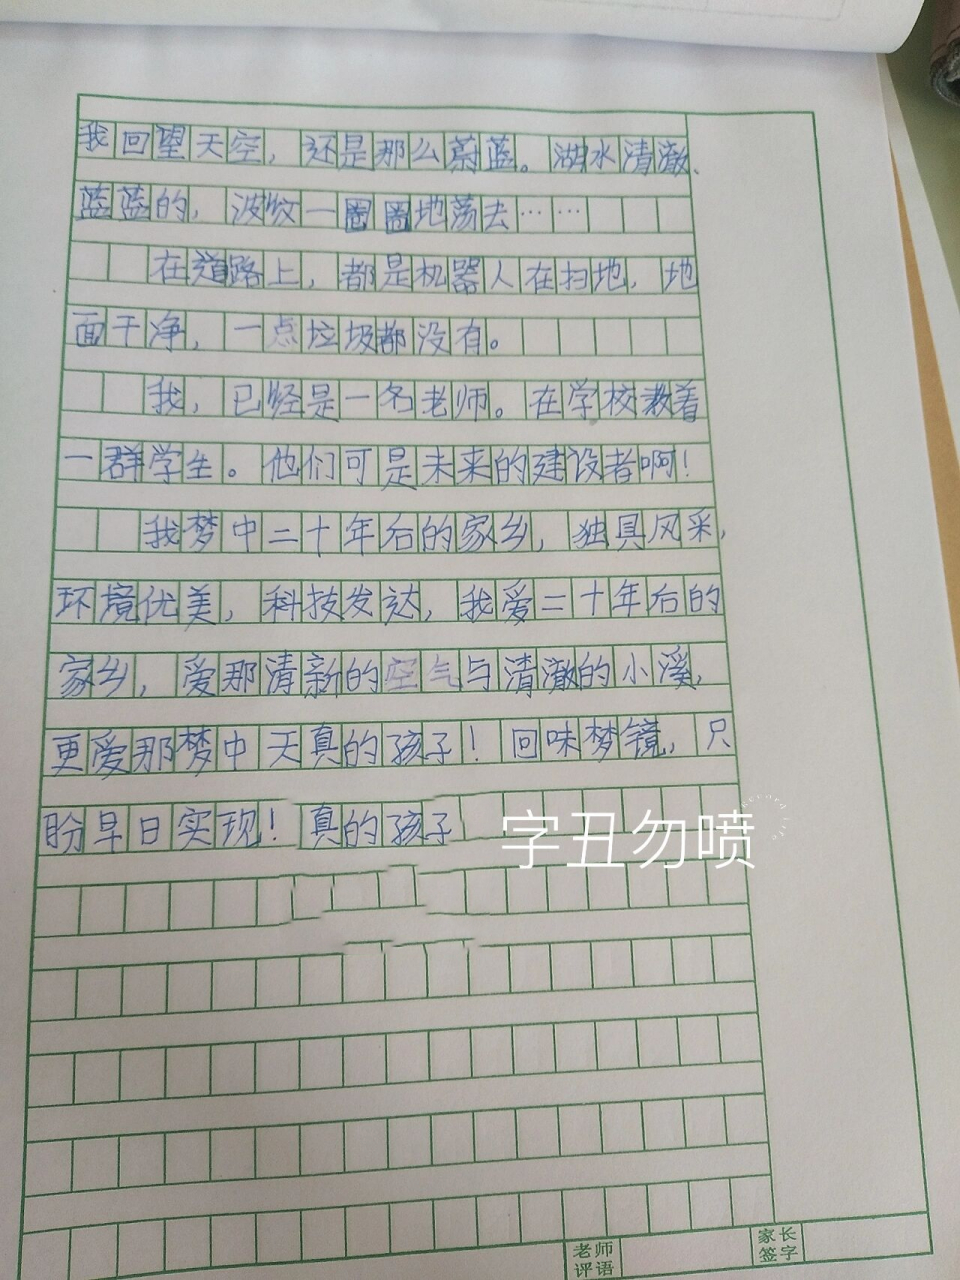 我回望天空，还是那么蔚蓝。湖水清澈、
蓝蓝的，波纹一圈圈地荡去……
在道路上，都是机器人在扫地，地
面干净，一点垃圾都没有。
我，已经是一名老师。在学校教着
一群学生。他们可是未来的建设者啊！
我梦中二十年后的家乡，独具风采，
环境优美，科技发达，我爱二十年后的
家乡，爱那清新的空气与清澈的小溪，
更爱那梦中天真的孩子！回味梦镜，只
盼早日实现！真的孩子
字丑勿喷
老师
评语
家长
签字